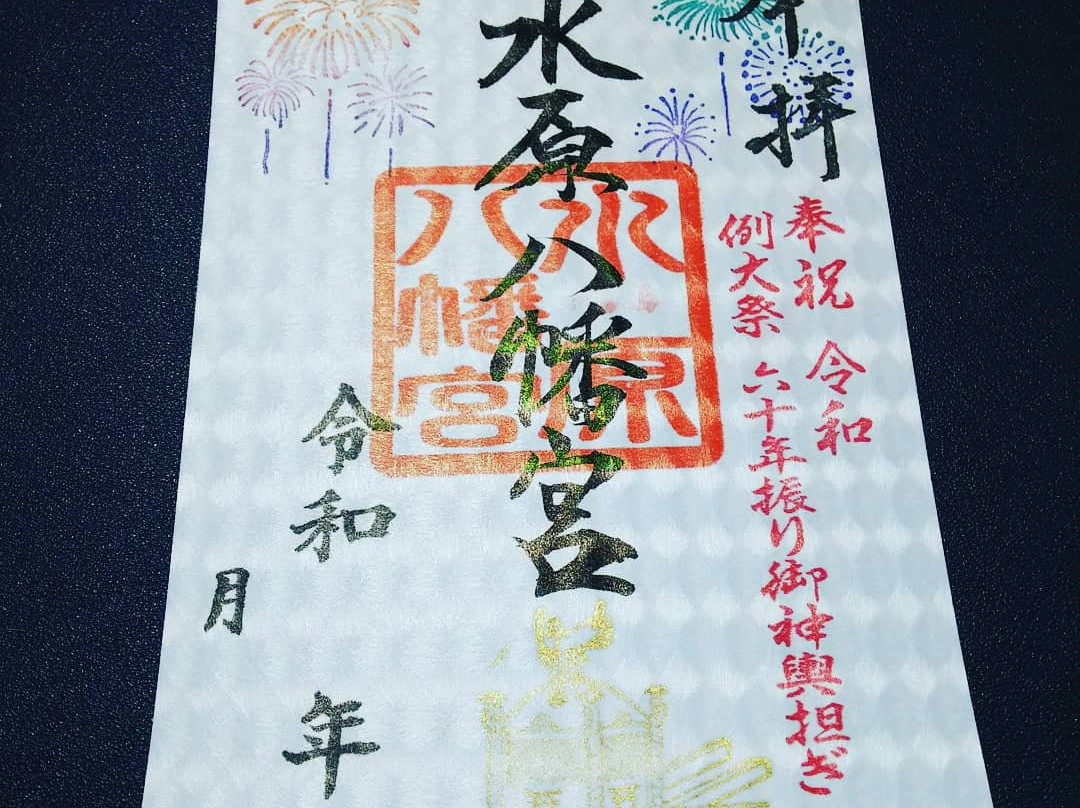 拝
奉祝 令和
例大祭 六十年振り御神輿担ぎ
水原八幡宮
水原
八幡宮
令和 年
月